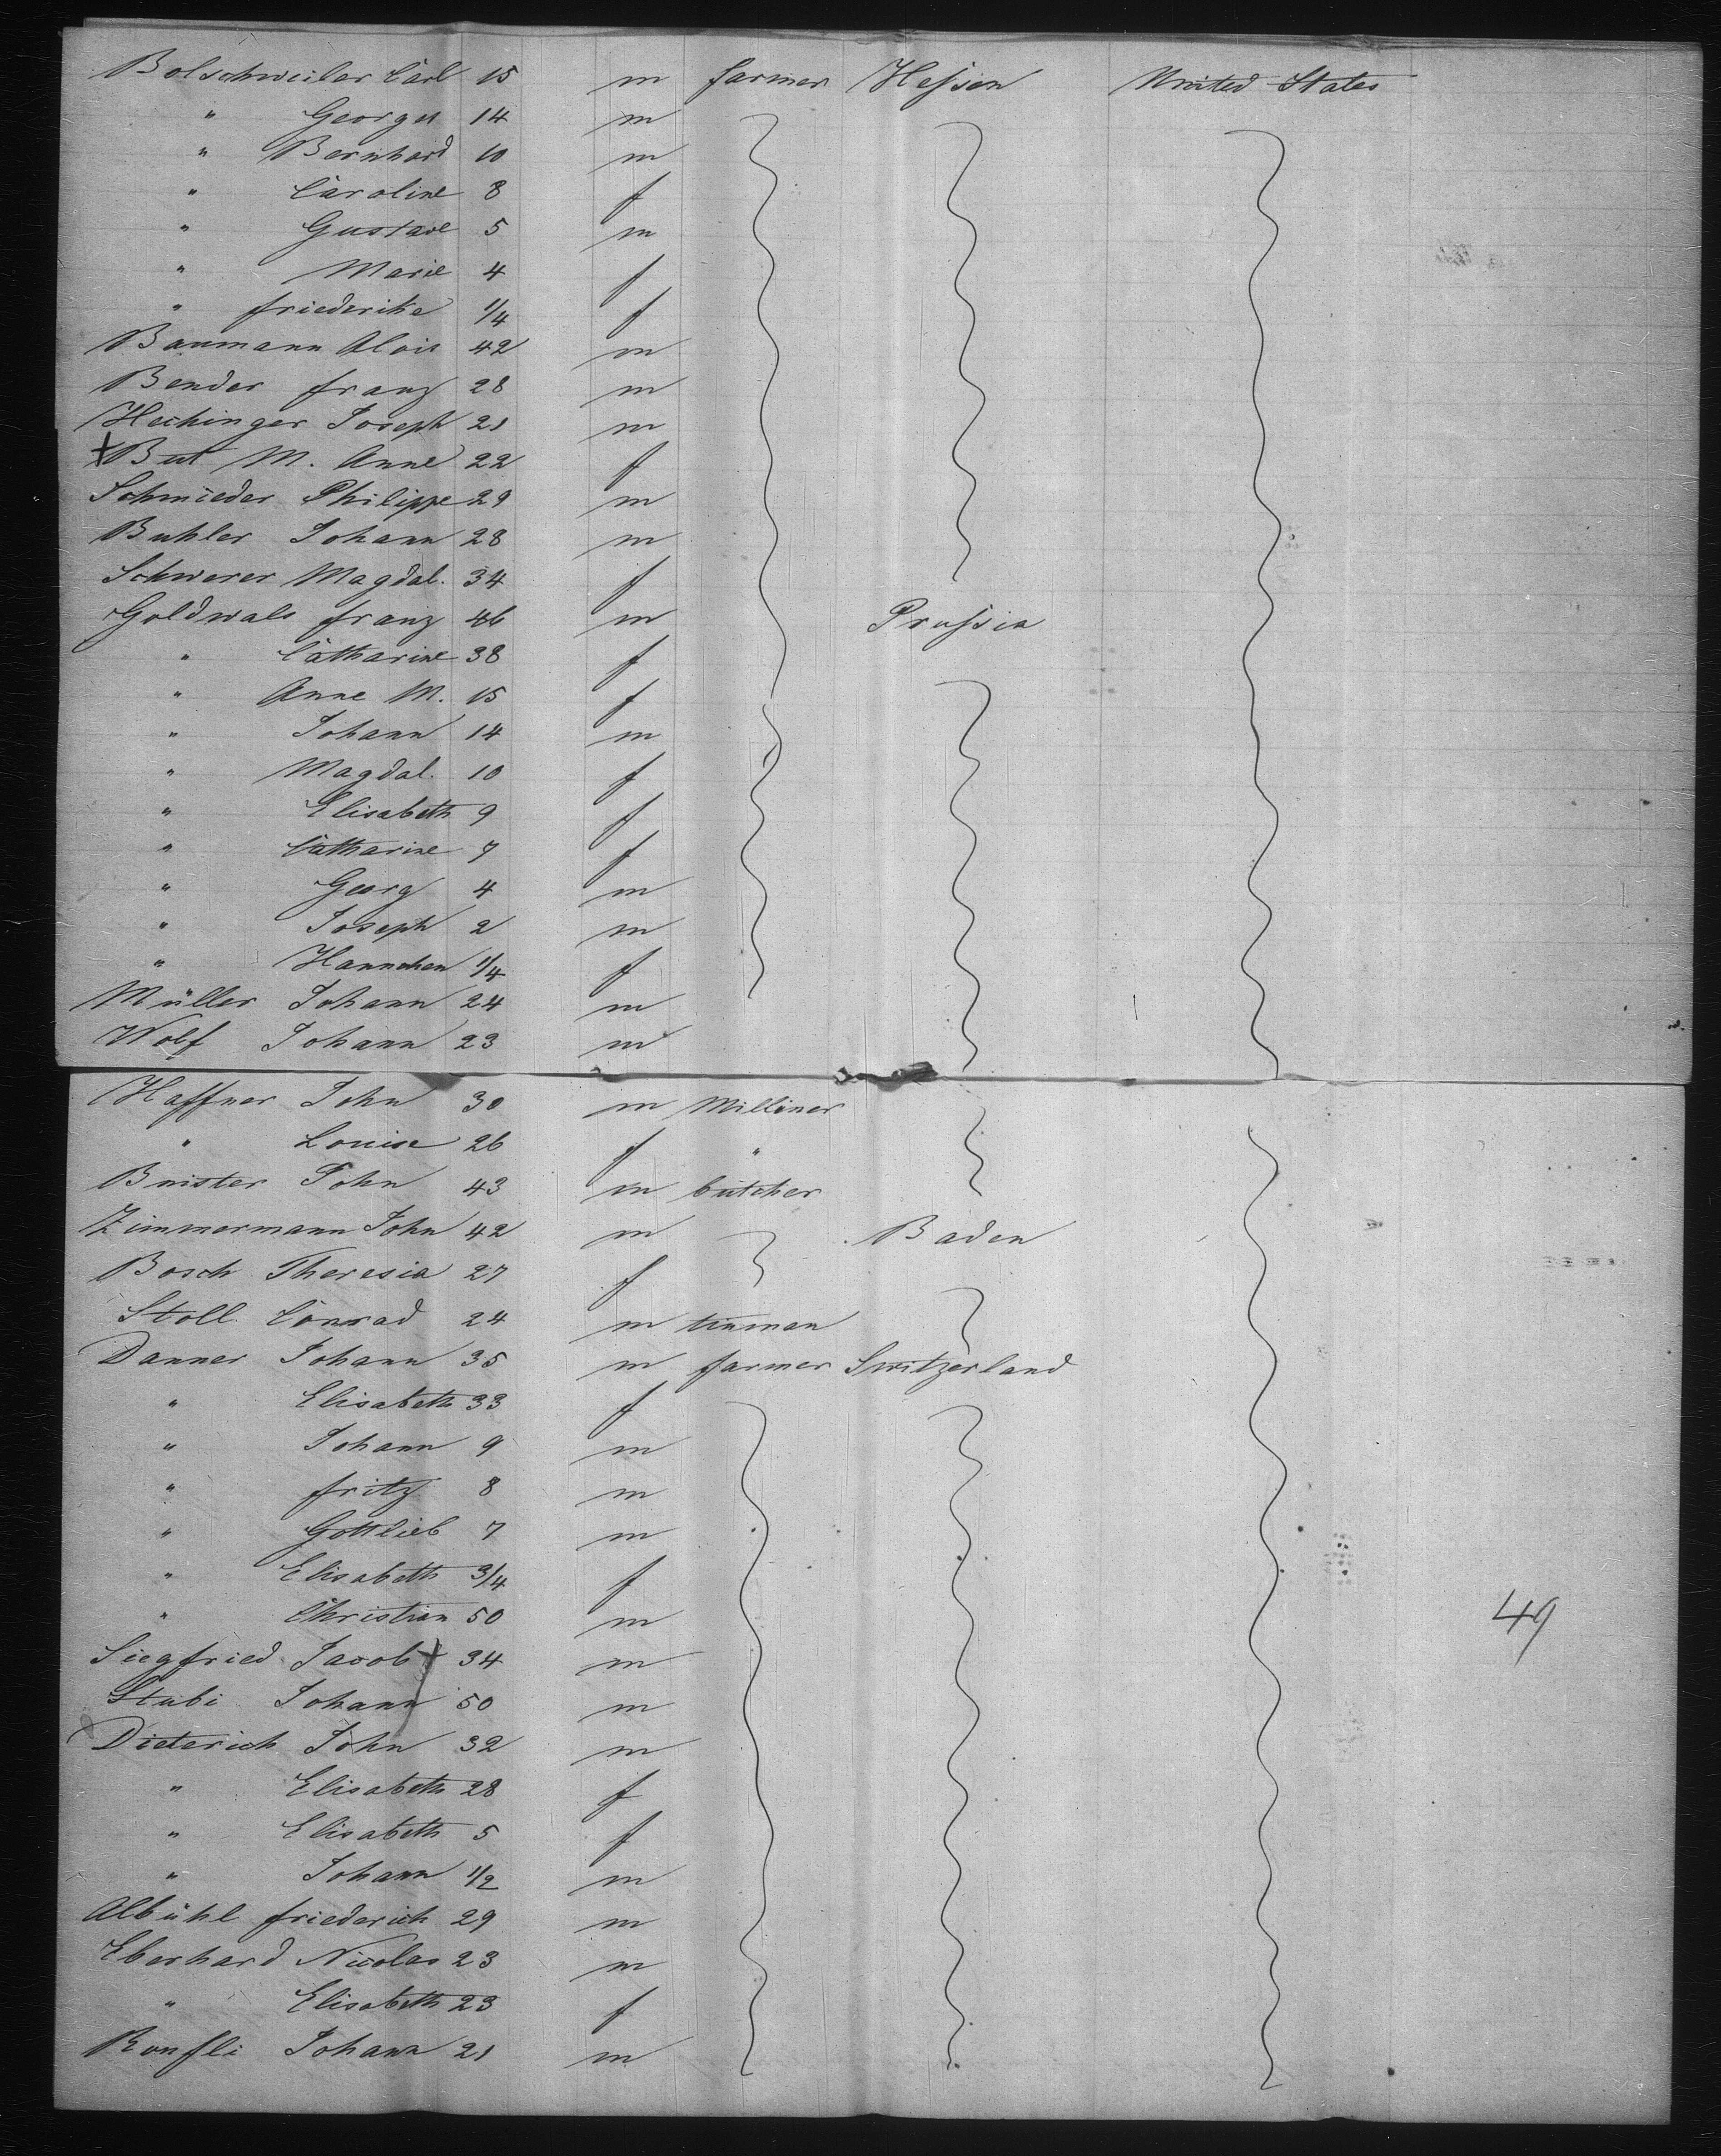 Bolschweiler Carl 15 m farmer Hessen United States
" Georges 14 m
" Bernhard 10 m
" Caroline 8 f
" Gustave 5 m
" Marie 4 f
" friederike 1/4 f
Baumann Alois 42 m
Bender franz 28 m
Hechinger Joseph 21 m
+ But M. Anne 22 f
Schmieder Philippe 29 m
Buhler Johann 28 m
Schwerer Magdal. 34 f
Goldwals franz 46 m Prussia
" Catharine 38 f
" Anne M. 15 f
" Johann 14 m
" Magdal. 10 f
" Elisabeth 9 f
" Catharine 7 f
" Georg 4 m
" Joseph 2 m
" Hannchen 1/4 f
Müller Johann 24 m
Wolf Johann 23 m
Haffner John 30 m Milliner
" Louise 26 f "
Bnister John 43 m butcher
Zimmermann John 42 m Baden
Bosch Theresia 27 f
Stoll Conrad 24 m tinman
Danner Johann 35 m farmer Switzerland
" Elisabeth 33 f
" Johann 9 m
" fritz 8 m
" Gottlieb 7 m
" Elisabeth 3/4 f
" Christian 50 m 49
Siegfried Jacob + 34 m
Stubi Johann 50 m
Dieterich John 32 m
" Elisabeth 28 f
" Elisabeth 5 f
" Johann 1/2 m
Albühl friederich 29 m
Eberhard Nicolas 23 m
" Elisabeth 23 f
Ronfli Johann 21 m